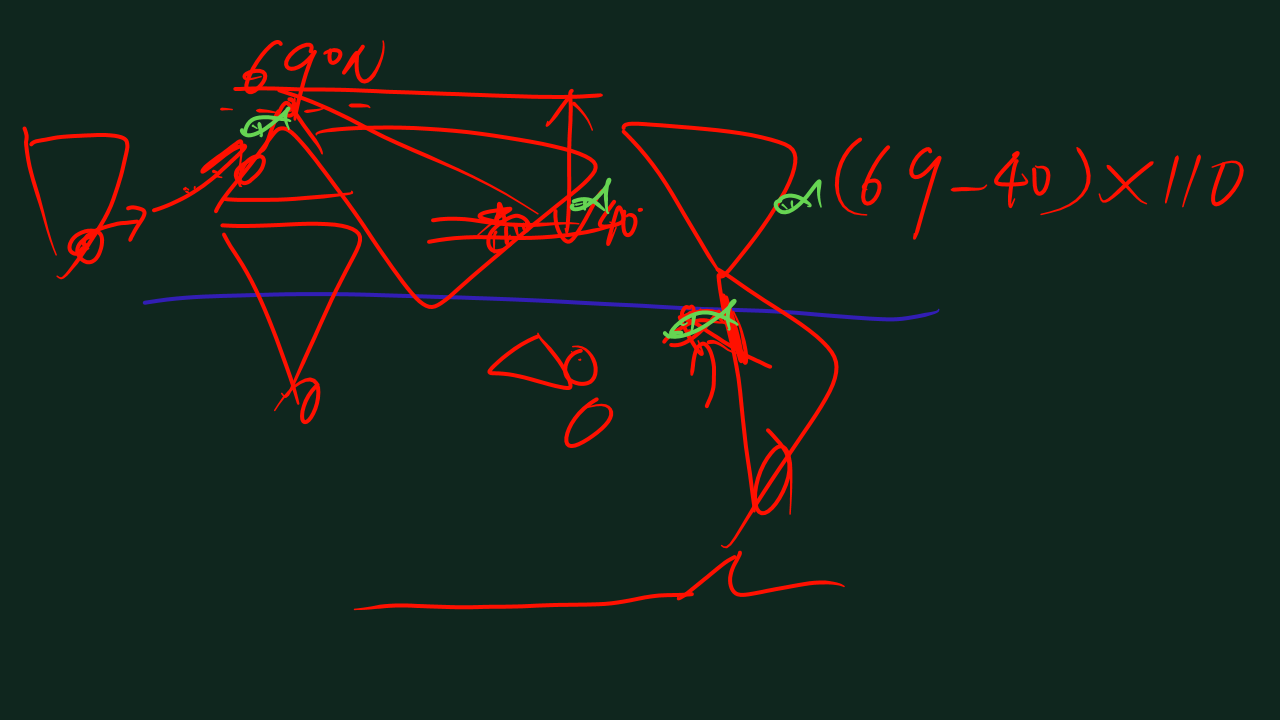 690N
40
(69-40)×110